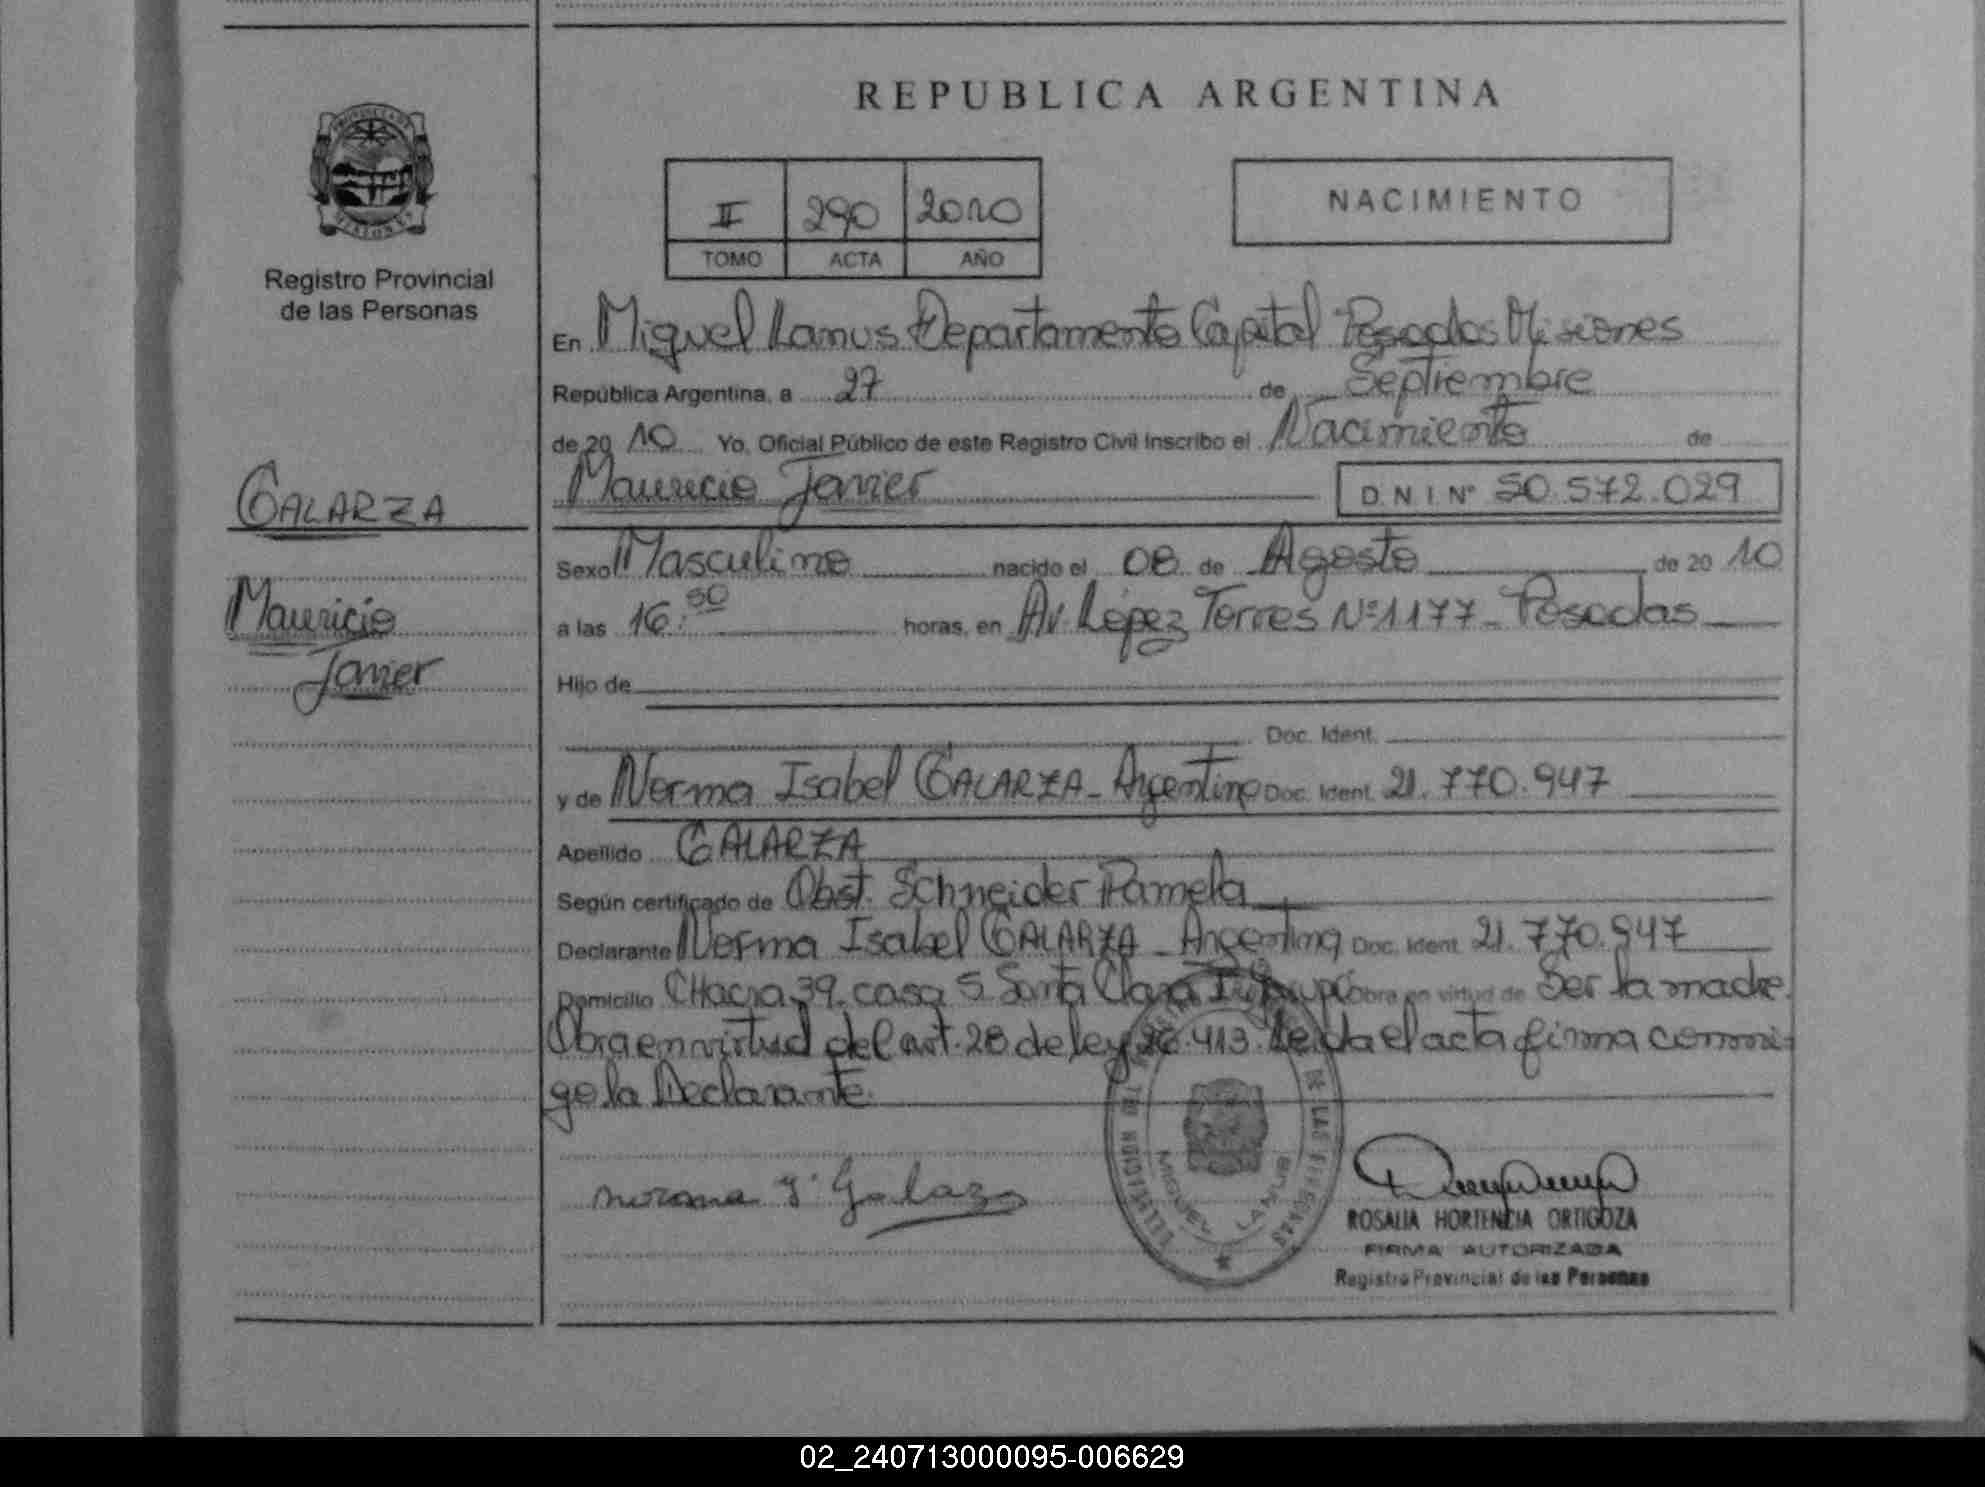 REPUBLICA ARGENTINA
II 290 2010
TOMO ACTA AÑO
NACIMIENTO
Registro Provincial
de las Personas
GALARZA
Mauricio
Javier
En Miguel Lanus Departamento Capital Posadas Misiones
República Argentina, a 27 de Septiembre
de 20 10 Yo, Oficial Público de este Registro Civil Inscribo el Nacimiento de
Mauricio Javier D.N.I. Nº 50.572.029
Sexo Masculino nacido el 08 de Agosto de 20 10
a las 16:30 horas, en Av. López Torres Nº 1177 - Posadas
Hijo de
Doc. Ident.
y de Norma Isabel GALARZA - Argentina Doc. Ident. 21.770.947
Apellido GALARZA
Según certificado de Obst. Schneider Pamela
Declarante Norma Isabel GALARZA - Argentina Doc. Ident. 21.770.947
Domicilio CHacra 39. casa 5 Santa Clara Obra en virtud de Ser la madre.
Obra en virtud del art. 28 de ley 26.413. Leida el acta firma conmi-
go la Declarante.
Norma I. Galarza
DELEGACION DEL REGISTRO DE LAS PERSONAS
MIGUEL LANUS
ROSALIA HORTENCIA ORTIGOZA
FIRMA AUTORIZADA
Registro Provincial de las Personas
02_240713000095-006629